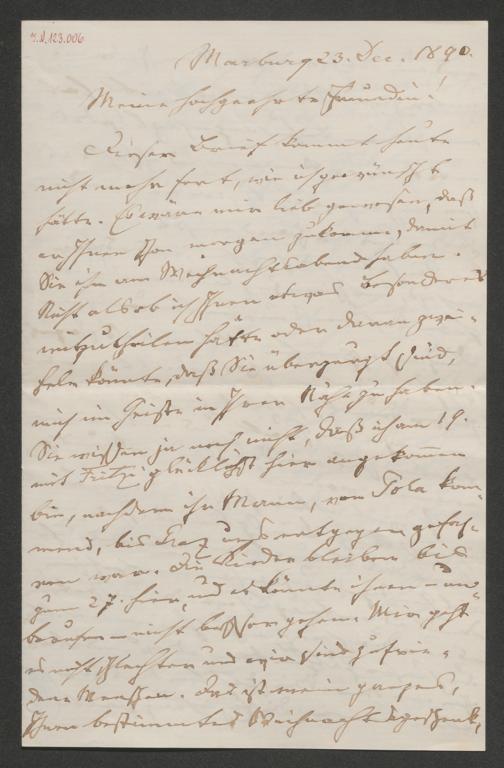 I.N. 123.006
Marburg 23. Dec. 1890.
Meine hochgeehrte Freundin!
Dieser Brief kommt heute
nicht mehr fort, wie ich gewünscht
hätte. Es wäre mir lieb gewesen, daß
er Ihnen schon morgen zukomme, damit
Sie ihn am Weihnachtsabend haben.
Nicht als ob ich Ihnen etwas Besonderes
mitzutheilen hätte oder daran zwei-
feln könnte, daß Sie überzeugt sind,
mich im Geiste in Ihrer Nähe zu haben.
Sie wissen ja noch nicht, daß ich am 19.
mit Fritzi glücklichst hier angekommen
bin, nachdem ihr Mann, von Pola kom-
mend, bis Graz uns entgegen gefah-
ren war. Die Kinder bleiben bis
zum 27. hier, und es könnte ihnen –
– nicht besser gehen. Mir geht
es nicht schlechter und wir sind zufrie-
dene Menschen. Das ist mein ganzes,
Ihnen bestimmtes Weihnachtsgeschenk,